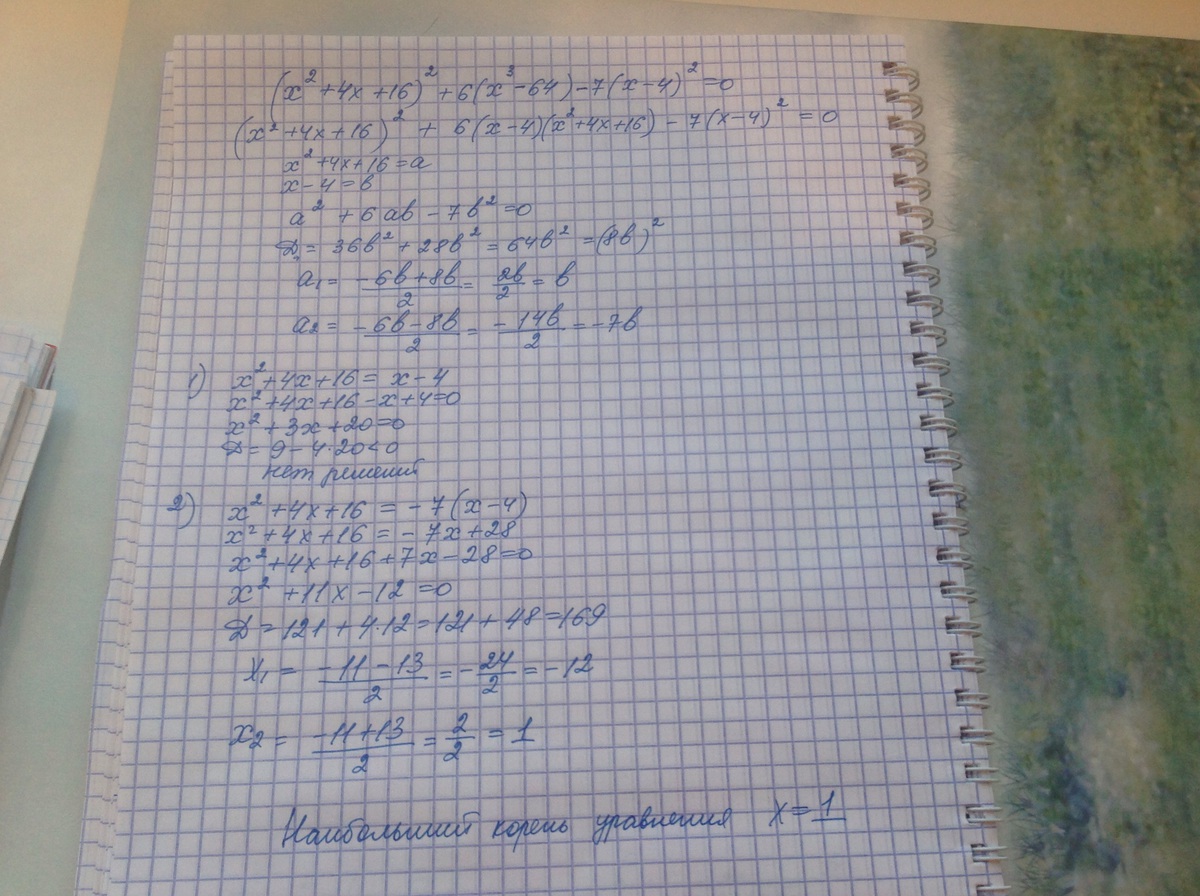 (x² + 4x + 16)² + 6(x³ - 64) - 7(x - 4)² = 0
(x² + 4x + 16)² + 6(x - 4)(x² + 4x + 16) - 7(x - 4)² = 0
x² + 4x + 16 = a
x - 4 = в
a² + 6aв - 7в² = 0
Д = 36в² + 28в² = 64в² = (8в)²
a₁ = (-6в + 8в)/2 = 2в/2 = в
a₂ = (-6в - 8в)/2 = -14в/2 = -7в
1) x² + 4x + 16 = x - 4
x² + 4x + 16 - x + 4 = 0
x² + 3x + 20 = 0
Д = 9 - 4·20 < 0
нет решений
2) x² + 4x + 16 = -7(x - 4)
x² + 4x + 16 = -7x + 28
x² + 4x + 16 + 7x - 28 = 0
x² + 11x - 12 = 0
Д = 121 + 4·12 = 121 + 48 = 169
x₁ = (-11 - 13)/2 = -24/2 = -12
x₂ = (-11 + 13)/2 = 2/2 = 1
Наибольший корень уравнения x = 1